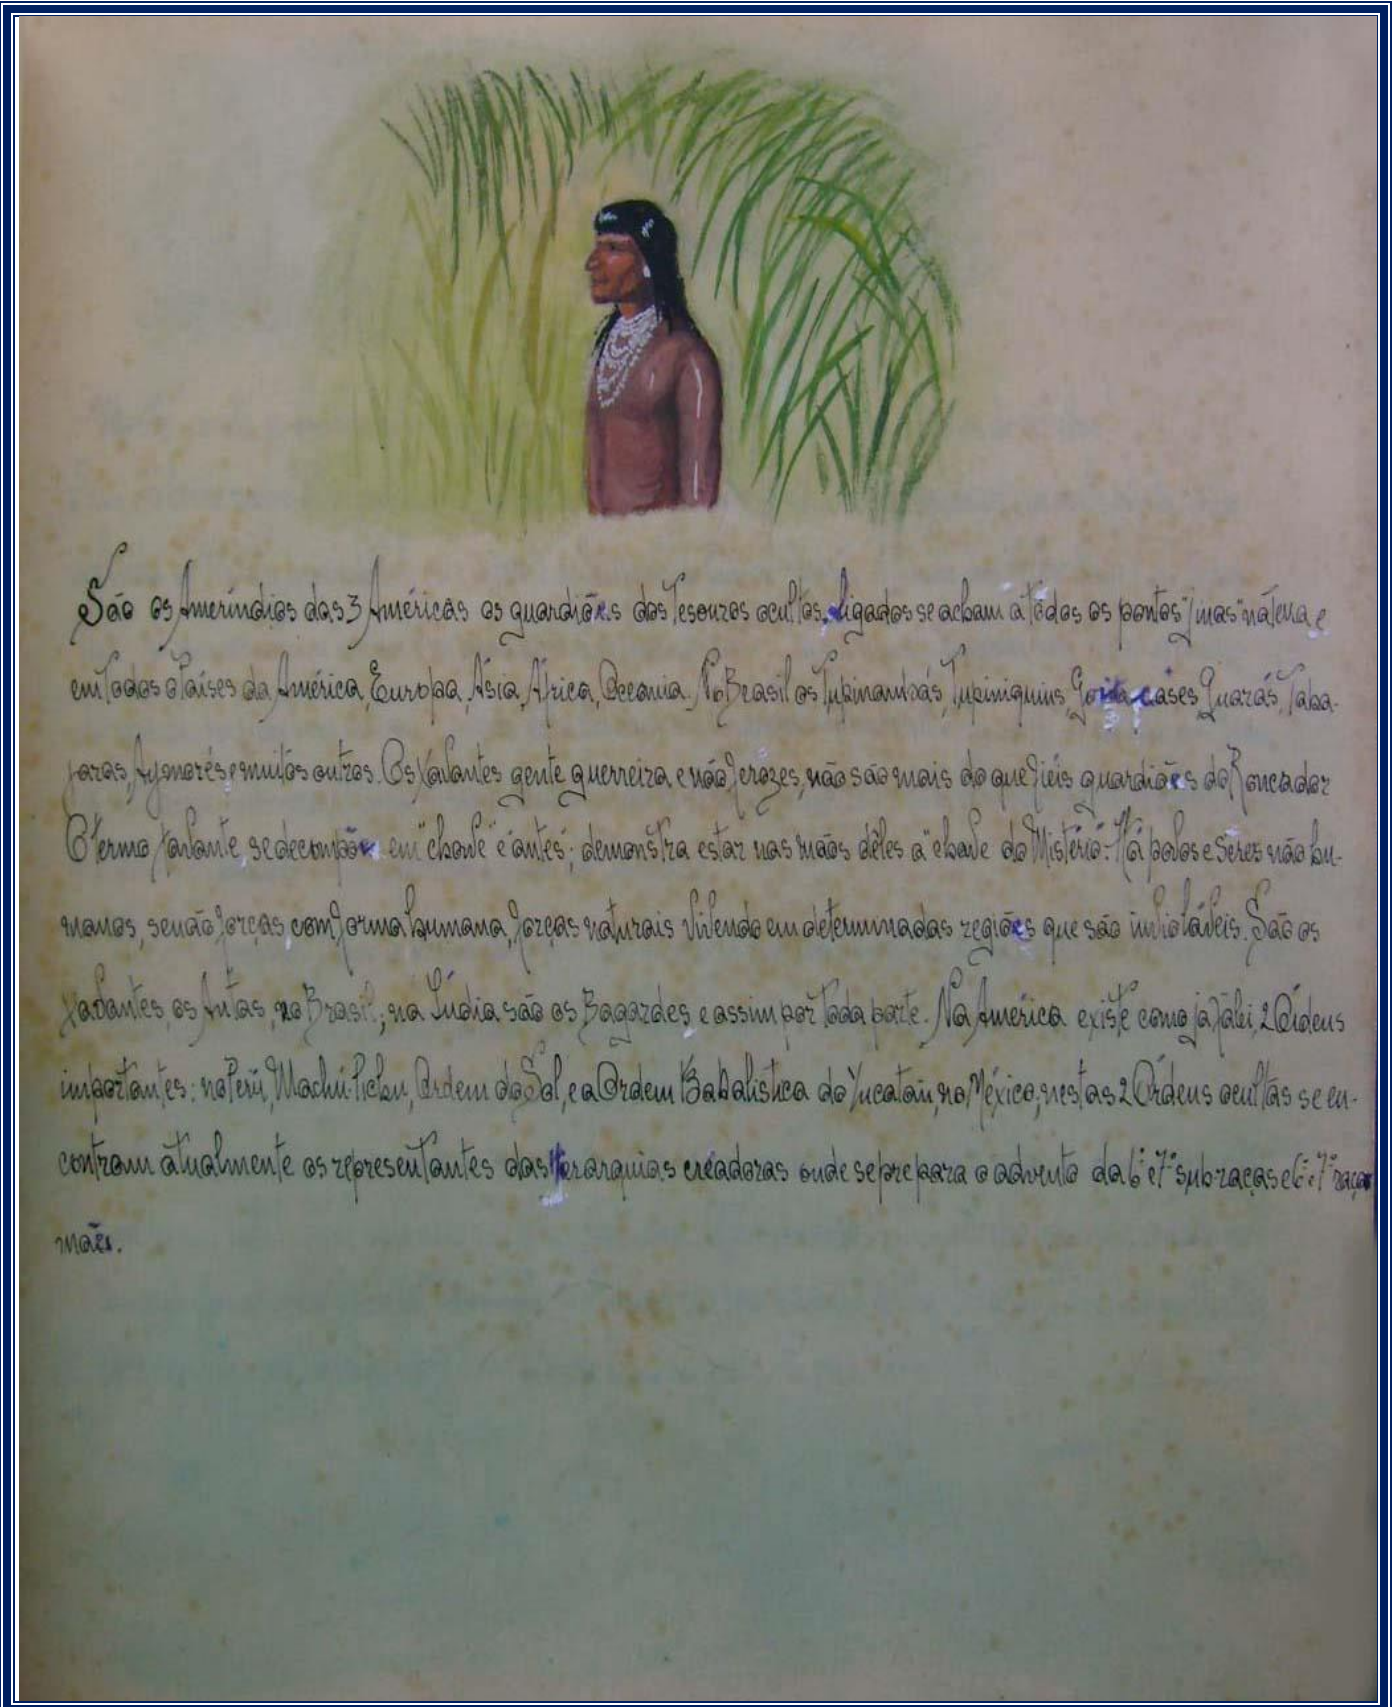 São os Ameríndios das 3 Américas os guardiães dos Tesouros ocultos. Ligados se acham a todos os pontos "Jinas" na terra e
em Todos os Países da América, Europa, Ásia, África, Oceania. No Brasil os Tupinambás, Tupiniquins, Goitacáses, Guarás, Taba-
jaras, Aymorés e muitos outros. Os Xavantes gente guerreira e não ferozes, não são mais do que fiéis guardiães do Roncador
O termo Xavante, se decompõe em "chave" e "antes"; demonstra estar nas mãos dêles a "chave do Mistério". Há povos e Seres não hu-
manos, senão forças, com forma humana, forças naturais vivendo em determinadas regiões que são invioláveis. São os
Xavantes, os Antas, no Brasil; na Índia são os Bagardes e assim por toda parte. Na América existe como já falei, 2 Ordens
importantes: no Perú, Machú-Pichu, Ordem do Sol, e a Ordem Kabalistica do Yucatan, no México; nestas 2 Ordens ocultas se en-
contram atualmente os representantes das Hierarquias creadoras onde se prepara o advento da 6ª e 7ª sub-raças e 6ª e 7ª raças
mães.